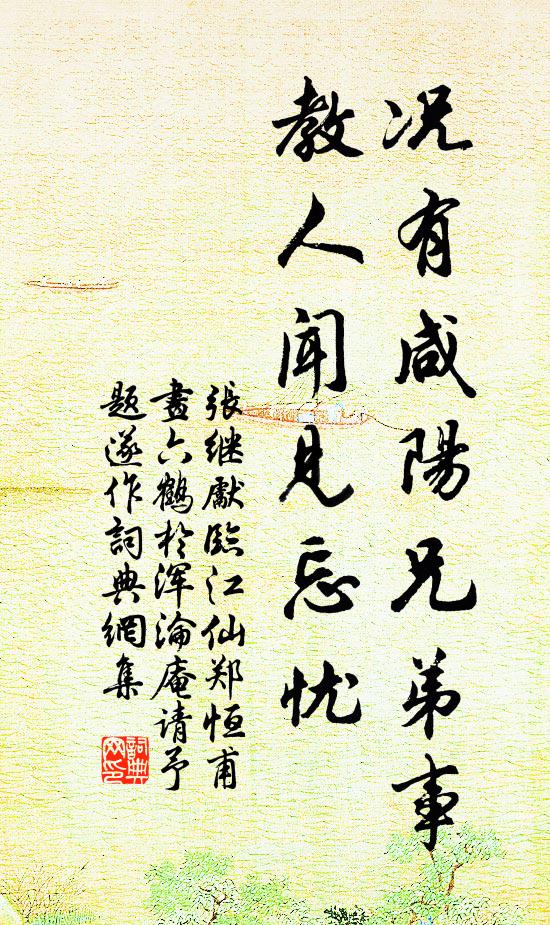 况有咸陽兄弟事
教人闻見忘忧
張继獻臨江仙郑恒甫
畫六鶴於浑淪庵请予
題遂作詞典網集
詞典网印